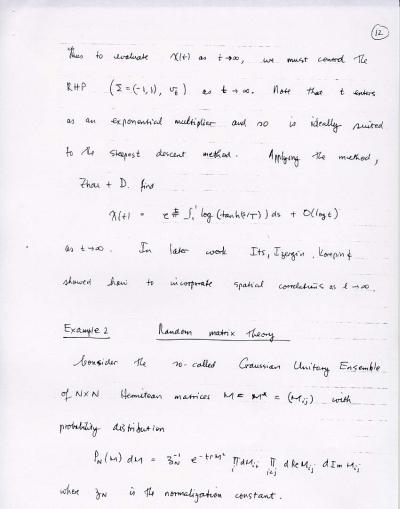 12
Thus to evaluate X(t) as t→∞, we must control the
RHP (Σ=(-1,1), v_t) as t→∞. Note that t enters
as an exponential multiplier and so is ideally suited
to the steepest descent method. Applying the method,
Zhou + D. find
X(t) = e ∫ log (tanh ) ds + O(log t)
as t→∞. In later work Its, Izergin, Korepin &
showed how to incorporate spatial correlations as t→∞.
Example 2 Random matrix theory
Consider the so-called Gaussian Unitary Ensemble
of N×N Hermitean matrices M = M* = (M_ij) with
probability distribution
P_N(M) dM = Z_N^-1 e^-tr M² ∏ dM_ii ∏_i<j d Re M_ij d Im M_ij
where Z_N is the normalization constant.